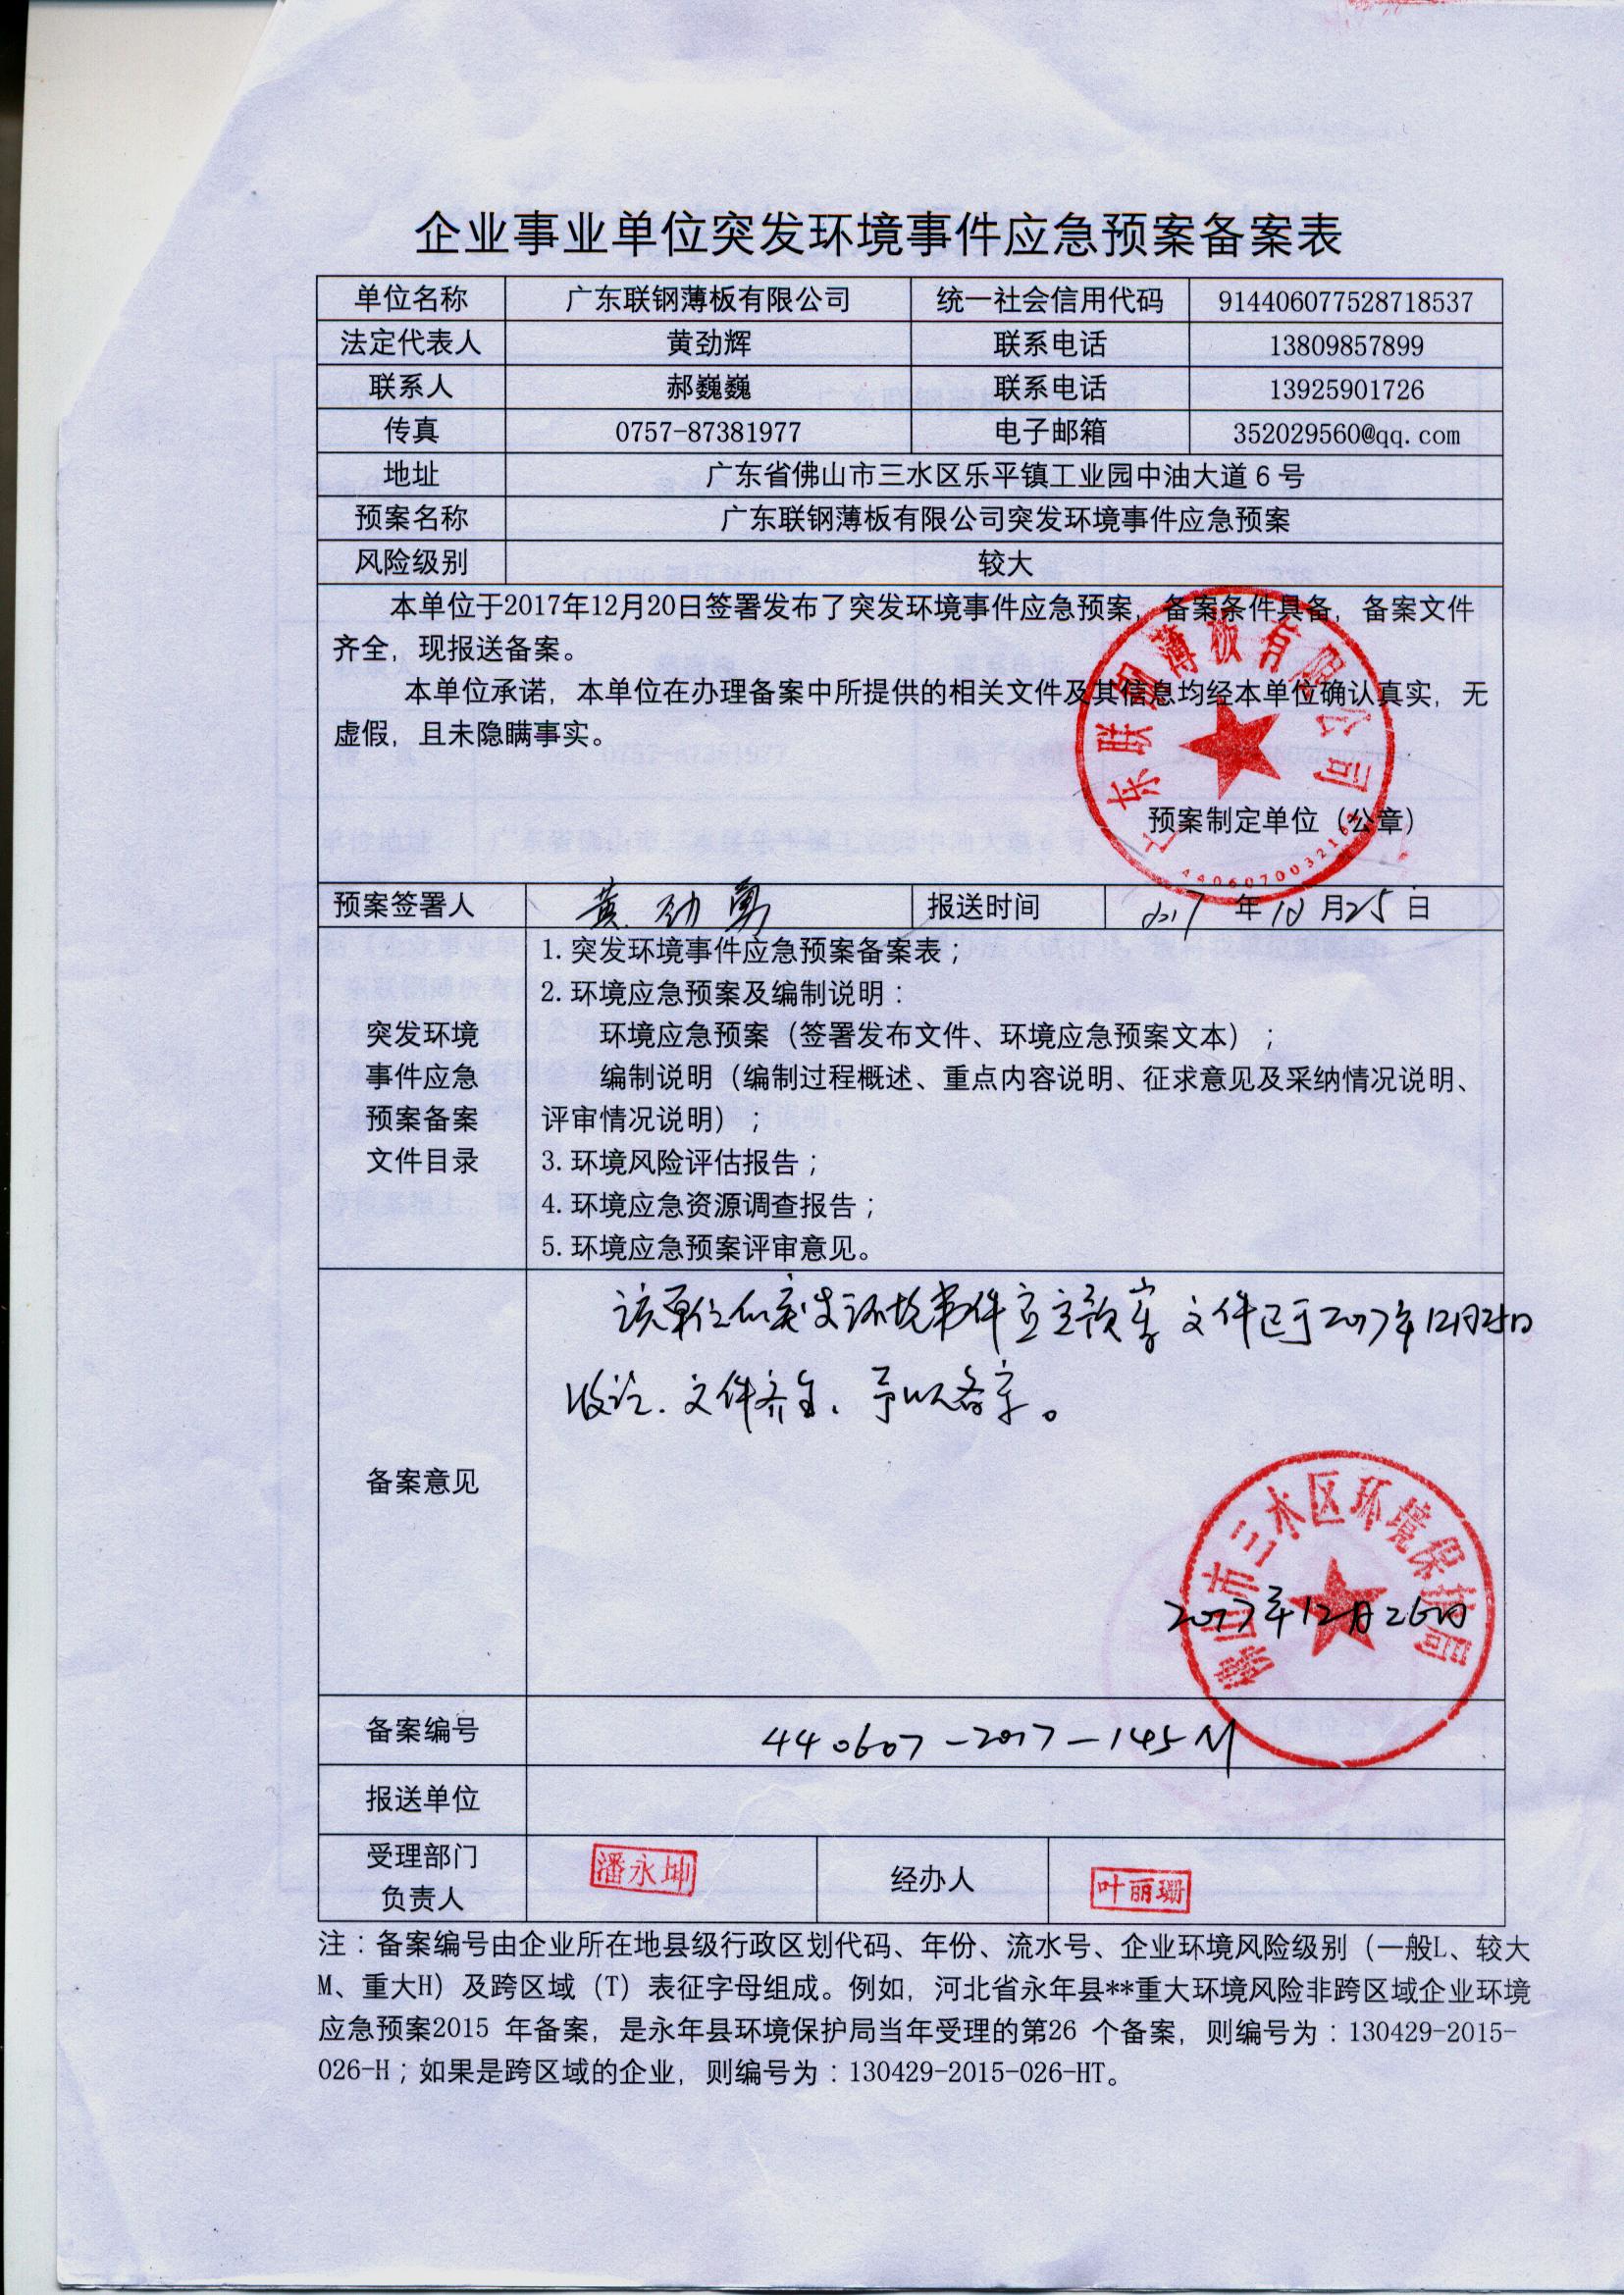 企业事业单位突发环境事件应急预案备案表
单位名称 广东联钢薄板有限公司 统一社会信用代码 914406077528718537
法定代表人 黄劲辉 联系电话 13809857899
联系人 郝巍巍 联系电话 13925901726
传真 0757-87381977 电子邮箱 352029560@qq.com
地址 广东省佛山市三水区乐平镇工业园中油大道6号
预案名称 广东联钢薄板有限公司突发环境事件应急预案
风险级别 较大
本单位于2017年12月20日签署发布了突发环境事件应急预案，备案条件具备，备案文件
齐全，现报送备案。
本单位承诺，本单位在办理备案中所提供的相关文件及其信息均经本单位确认真实，无
虚假，且未隐瞒事实。
广东联钢薄板有限公司
预案制定单位（公章）
预案签署人 黄劲勇 报送时间 2017年12月25日
突发环境
事件应急
预案备案
文件目录
1.突发环境事件应急预案备案表；
2.环境应急预案及编制说明：
环境应急预案（签署发布文件、环境应急预案文本）；
编制说明（编制过程概述、重点内容说明、征求意见及采纳情况说明、
评审情况说明）；
3.环境风险评估报告；
4.环境应急资源调查报告；
5.环境应急预案评审意见。
备案意见
该单位的突发环境事件应急预案文件已于2017年12月25日
收讫.文件齐全、予以备案。
佛山市三水区环境保护局
2017年12月26日
备案编号 440607-2017-145M
报送单位
受理部门
负责人
潘永坤 经办人 叶丽珊
注：备案编号由企业所在地县级行政区划代码、年份、流水号、企业环境风险级别（一般L、较大
M、重大H）及跨区域（T）表征字母组成。例如，河北省永年县**重大环境风险非跨区域企业环境
应急预案2015 年备案，是永年县环境保护局当年受理的第26 个备案，则编号为：130429-2015-
026-H；如果是跨区域的企业，则编号为：130429-2015-026-HT。